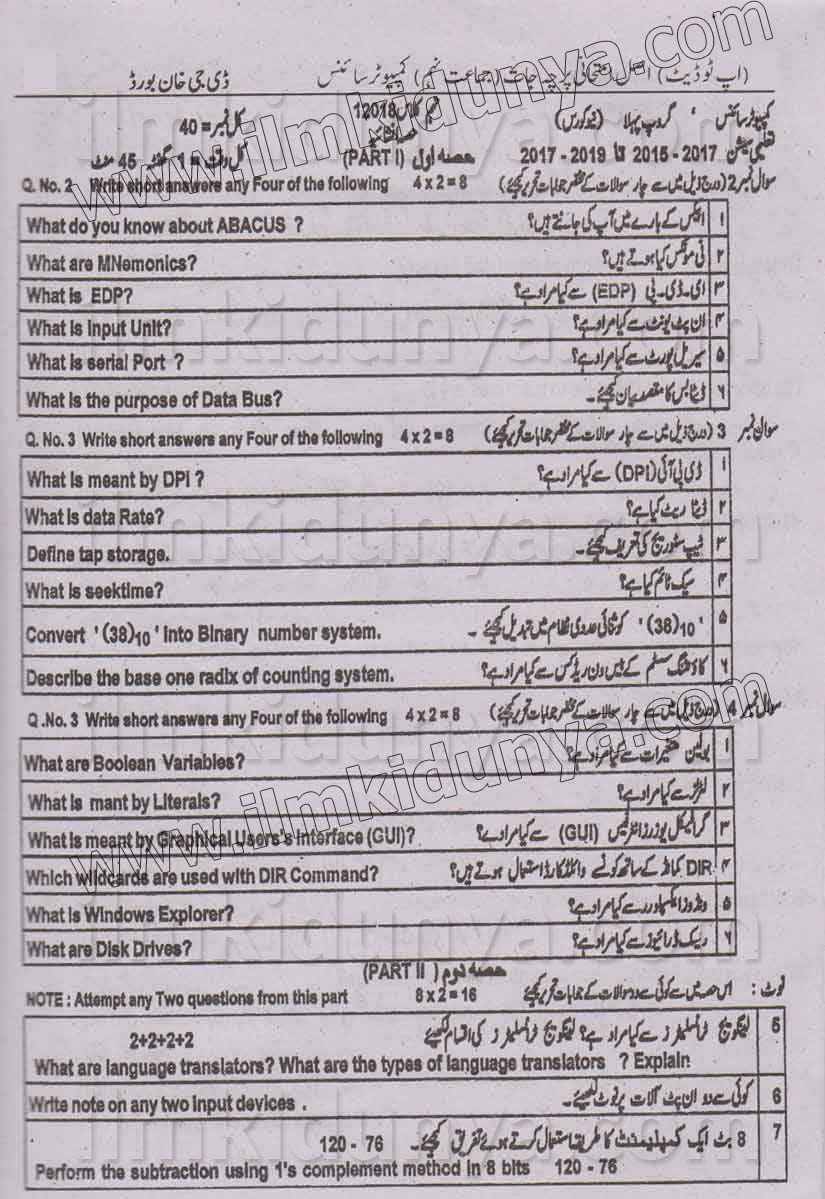 www.ilmkidunya.com
(اپ ٹوڈیٹ) اصل امتحانی پرچہ جات (جماعت نہم) کمپیوٹر سائنس ڈی جی خان بورڈ
کمپیوٹر سائنس گروپ پہلا (نیو کورس) 12018 کل نمبر = 40
تعلیمی سیشن 2017 - 2015 تا 2019 - 2017 حصہ اول (PART I) کل وقت = 1 گھنٹہ 45 منٹ
Q. No. 2 Write short answers any Four of the following 4 x 2 = 8 سوال نمبر 2 (درج ذیل میں سے چار سوالات کے مختصر جوابات تحریر کیجئے)
What do you know about ABACUS ? ابیکس کے بارے میں آپ کیا جانتے ہیں؟ ۱
What are MNemonics? نی مونکس کیا ہوتے ہیں؟ ۲
What is EDP? ای۔ڈی۔پی (EDP) سے کیا مراد ہے؟ ۳
What is input Unit? ان پٹ یونٹ سے کیا مراد ہے؟ ۴
What is serial Port ? سیریل پورٹ سے کیا مراد ہے؟ ۵
What is the purpose of Data Bus? ڈیٹا بس کا مقصد بیان کیجئے۔ ۶
Q. No. 3 Write short answers any Four of the following 4 x 2 = 8 سوال نمبر 3 (درج ذیل میں سے چار سوالات کے مختصر جوابات تحریر کیجئے)
What is meant by DPI ? ڈی پی آئی (DPI) سے کیا مراد ہے؟ ۱
What is data Rate? ڈیٹا ریٹ کیا ہے؟ ۲
Define tap storage. ٹیپ سٹوریج کی تعریف کیجئے۔ ۳
What is seektime? سیک ٹائم کیا ہے؟ ۴
Convert '(38)₁₀' into Binary number system. '(38)₁₀' کو ثنائی عددی نظام میں تبدیل کیجئے۔ ۵
Describe the base one radix of counting system. کاؤنٹنگ سسٹم کے بیس ون ریڈکس سے کیا مراد ہے؟ ۶
Q .No. 3 Write short answers any Four of the following 4 x 2 = 8 سوال نمبر 4 (درج ذیل میں سے چار سوالات کے مختصر جوابات تحریر کیجئے)
What are Boolean Variables? بولین متغیرات سے کیا مراد ہے؟ ۱
What is mant by Literals? لٹرلز سے کیا مراد ہے؟ ۲
What is meant by Graphical Users's interface (GUI)? گرافیکل یوزرز انٹرفیس (GUI) سے کیا مراد ہے؟ ۳
Which wildcards are used with DIR Command? DIR کمانڈ کے ساتھ کونسے وائلڈ کارڈ استعمال ہوتے ہیں؟ ۴
What is Windows Explorer? ونڈوز ایکسپلورر سے کیا مراد ہے؟ ۵
What are Disk Drives? ڈسک ڈرائیوز سے کیا مراد ہے؟ ۶
حصہ دوم (PART II)
NOTE : Attempt any Two questions from this part 8 x 2 = 16 نوٹ : اس حصہ میں سے کوئی سے دو سوالات کے جوابات تحریر کیجئے
2+2+2+2 لینگویج ٹرانسلیٹرز سے کیا مراد ہے؟ لینگویج ٹرانسلیٹرز کی اقسام لکھیئے 5
What are language translators? What are the types of language translators ? Explain
Write note on any two input devices . کوئی سے دو ان پٹ آلات پر نوٹ لکھیئے۔ 6
120 - 76 8 بٹ ایک کمپلیمنٹ کا طریقہ استعمال کرتے ہوئے تفریق کیجئے۔ 7
Perform the subtraction using 1's complement method in 8 bits 120 - 76